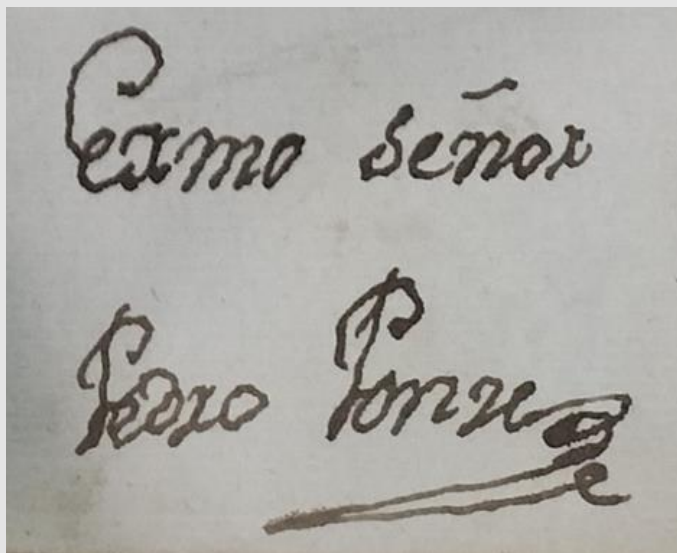 Exmo señor
Pedro Ponze